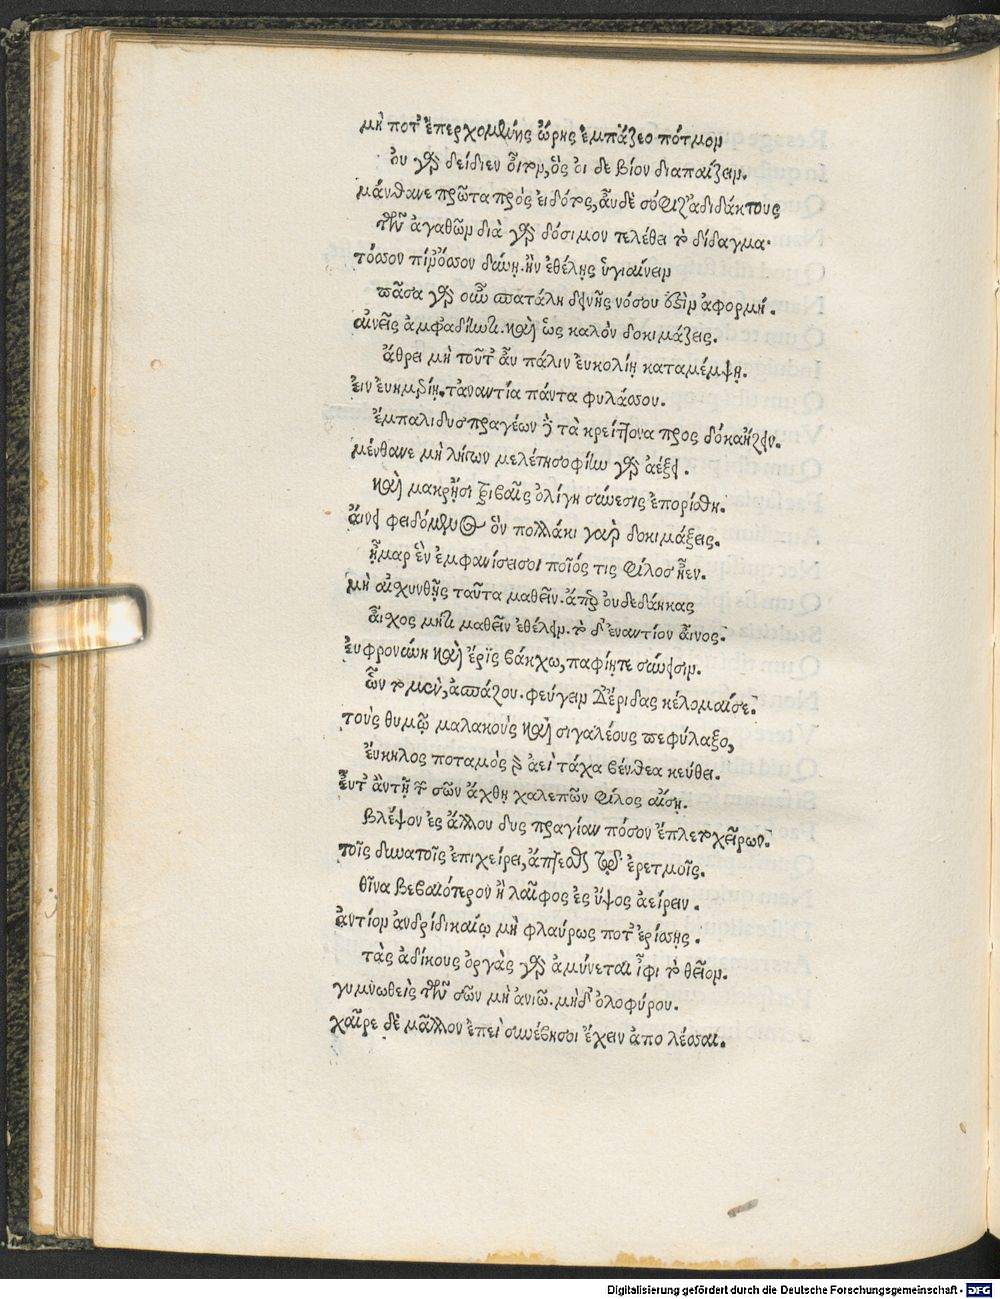 μὴ ποτ' ἔπερχομένης ὥρης ἐμπάζεο πότμον
ὀυ γὰρ δείδιεν ὅιτον, ὃς ὁι δε βίον διαπαίζειν.
μάνθανε πρῶτα πρὸς ἐιδότας, ἀυδὲ σόφιζ' ἀδιδάκτους
τῶν ἀγαθῶν διὰ γὰρ δόσιμον τελέθει τὸ δίδαγμα.
τόσσον πῖν' ὅσσον δώῃ. ἢν ἐθέλῃς ὑγιαίνειν
πᾶσα γὰρ οὖν σπατάλη δεινῆς νόσου ἐστὶν ἀφορμή.
αἰνεῖς ἀμφαδίην. καὶ ὡς καλὸν δοκιμάζεις.
ἄθρει μὴ τοῦτ' ἆυ πάλιν ἐυκολίῃ καταμέμψῃ.
ἐιν ἐυημερίῃ. τἀναντία πάντα φυλάσσου.
ἔμπαλι δυσπραγέων ἢ τὰ κρείττονα προς δόκαιἧξειν.
μάνθανε μὴ λήγων μελέτη σοφίην γὰρ ἀέξει.
καὶ μακρῇσι τριβαῖς ὀλίγη σύνεσις ἐπορίσθη.
ἄινει φειδόμενος ὃν πολλάκι γαὶρ δοκιμάζεις.
ἦμαρ ἓν ἐμφανίσεισοι ποῖός τις φίλος ἦεν.
μὴ αἰσχυνθῇς ταῦτα μαθεῖν. ἅπερ ὀυδεδάηκας
ἆισχος μηδὲν μαθεῖν ἐθέλειν. τὸ δ' ἐναντίον ἆινος.
ἐυφροσύνη καὶ ἔρϊς βάκχω, παφίη τε σύνεισιν.
ὧν τὸ μὲν, ἀσπάζου. φεύγειν δ' ἔριδας κέλομαίσε.
τοὺς θυμῷ μαλακοὺς καὶ σιγαλέους πεφύλαξο,
ἔυκηλος ποταμὸς ὃς ἀεὶ τάχα βένθεα κεύθει.
ἐυτ' ἂντῇ τῶν σῶν ἄχθῃ χαλεπῶν φίλος αἴσῃ.
βλέψον ἐς ἄλλου δυσπραγίαν πόσον ἔπλετο χεῖρων.
τοῖς δυνατοῖς ἐπιχείρει, ἅπτεσθαι τῶνδ' ἐρετμοῖς.
θῖνα βεβαιότερον ἢ λαῖφος ἐς ὕψος ἀείρειν.
ἀντίον ἀνδρὶ δικαίῳ μὴ φλαύρως ποτ' ἐρίσσῃς.
τὰς ἀδίκους ὀργὰς γὰρ ἀμύνεται ἶφι τὸ θεῖον.
γυμνωθεὶς τῶν σῶν μὴ ἀνιῶ. μηδ' ὀλοφύρου.
χαῖρε δὲ μᾶλλον ἐπεὶ συνέβησοι ἔχειν ἀπολέσσαι.
Digitalisierung gefördert durch die Deutsche Forschungsgemeinschaft - DFG